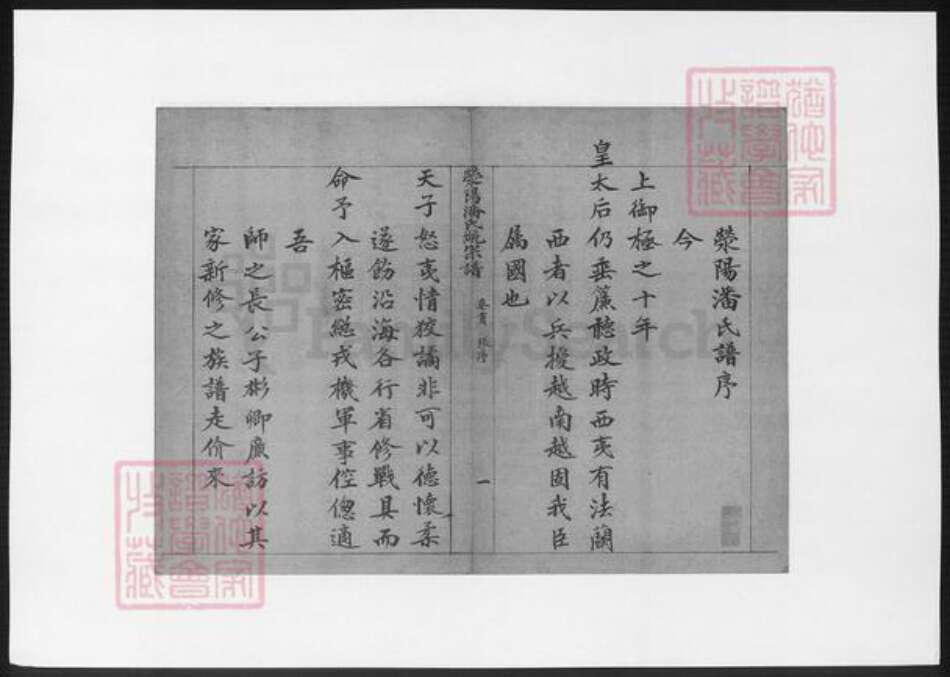 滎陽潘氏譜序
今
上御極之十年
皇太后仍垂簾聽政時西夷有法蘭
西者以兵擾越南越固我臣
屬國也
滎陽潘氏統宗譜
卷首
一
天子怒夷情狡譎非可以德懷柔
遂飭沿海各行省修戰具而
命予入樞密總戎機軍事倥傯適
吾
師之長公子彬卿廉訪以其
家新修之族譜走价來
FamilySearch